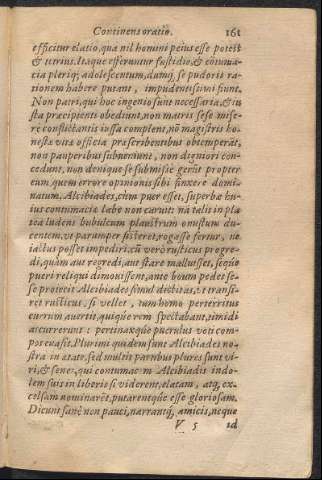 Continens oratio. 161
efficitur elatio, qua nil homini peius esse potest
& tetrius. Itaque efferuntur fastidio, & cōtuma-
cia pleriq; adolescentum, dumq, se pudoris ra-
tionem habere putant, impudentissimi sunt.
Non patri, qui hoc ingenio sunt necessaria, & iu
sta præcipienti obediunt, non matris sese mise-
re conflictantis iussa complent, nō magistris ho-
nestæ vitæ officia præscribentibus obtemperāt,
non pauperibus subueniunt, non digniori con-
cedunt, non denique se submisse gerūt propter
eum, quem errore opinionis sibi finxere domi-
natum. Alcibiades, cùm puer esset, superbæ hu-
ius contumaciæ labe non caruit: nā talis in pla
tea ludens bubulcum plaustrum onustum du-
centem, vt parumper sisteret, rogasse fertur, ne
iactus posset impediri: cū verò rusticus progre-
di, quàm aut regredi, aut stare malluisset, seque
pueri reliqui dimouissent, ante boum pedes se-
se proiecit Alcibiades simul dictitās, vt transi-
ret rusticus, si vellet, tum homo perterritus
currum auertit, quique rem spectabant, timidi
accurrerunt: pertinaxque puerulus voti com-
pos euasit. Plurimi quidem sunt Alcibiades no-
stra in ætate, sed multis partibus plures sunt vi-
ri, & senes, qui contumacem Alcibiadis indo-
lem suis in liberis si viderent, elatam, atq, ex-
celsam nominarēt, putarentque esse gloriosam.
Dicunt sanè non pauci, narrantq, amicis, neque
V 5 id